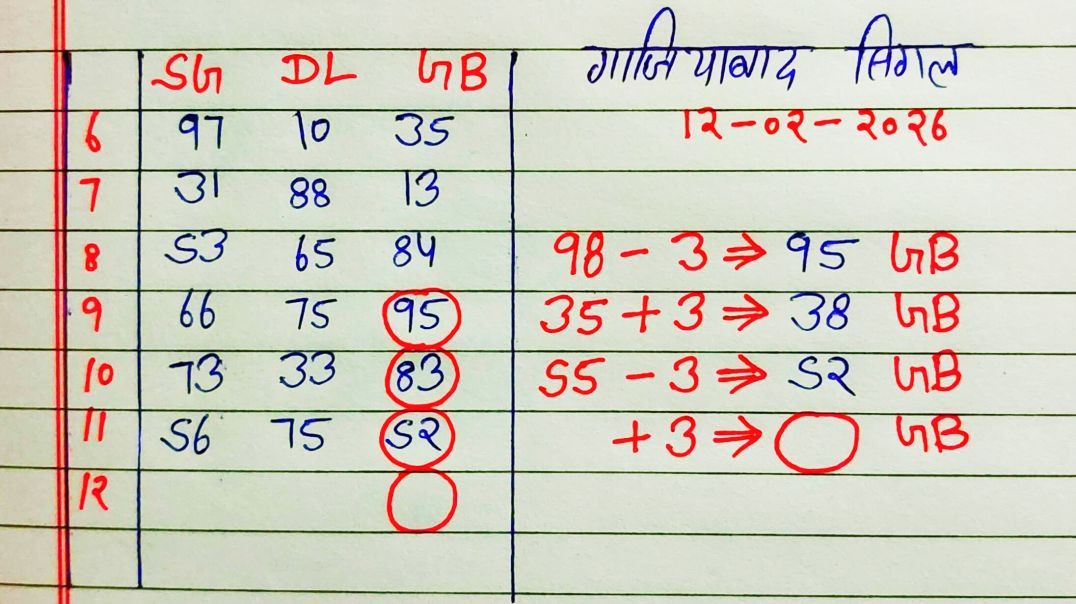 SG DL GB गाजियाबाद सिगल
6 97 10 35 १२-०२-२०२६
7 31 88 13
8 53 65 84 98 - 3 ⇒ 95 GB
9 66 75 95 35 + 3 ⇒ 38 GB
10 73 33 83 55 - 3 ⇒ 5२ GB
11 56 75 5२ + 3 ⇒ GB
1२